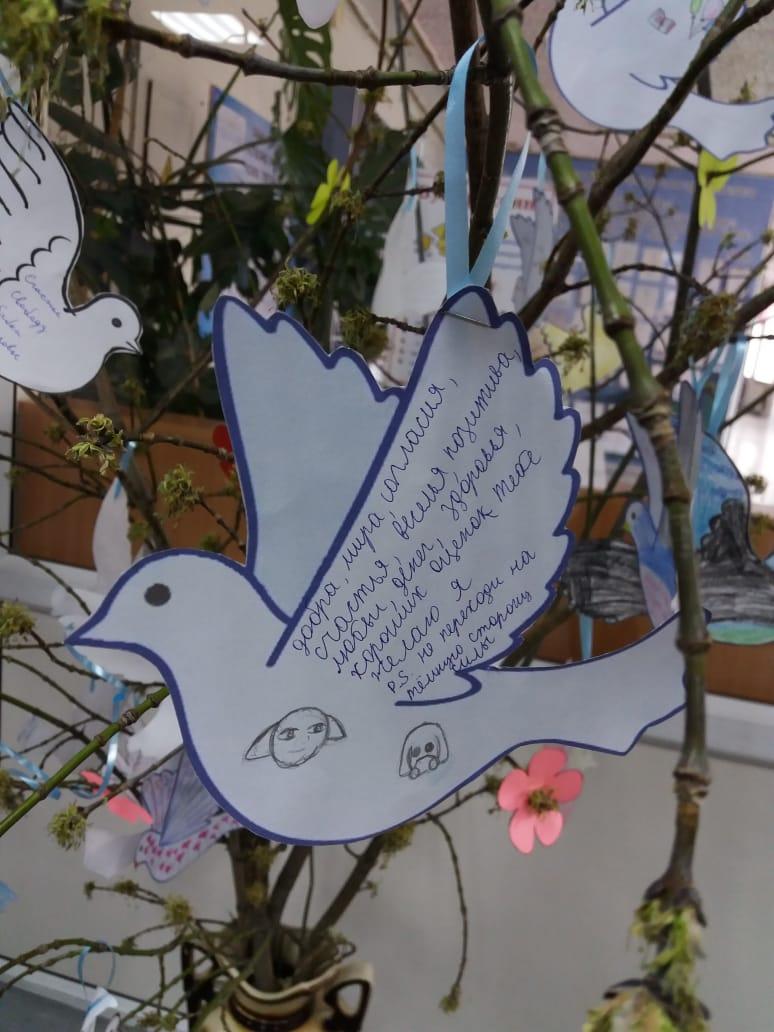 Счастья
добра, мира, согласия,
счастья, веселья позитива,
любви, денег, здоровья,
хороших оценок тебе
желаю я
P.S. не переходи на
тёмную сторону
силы